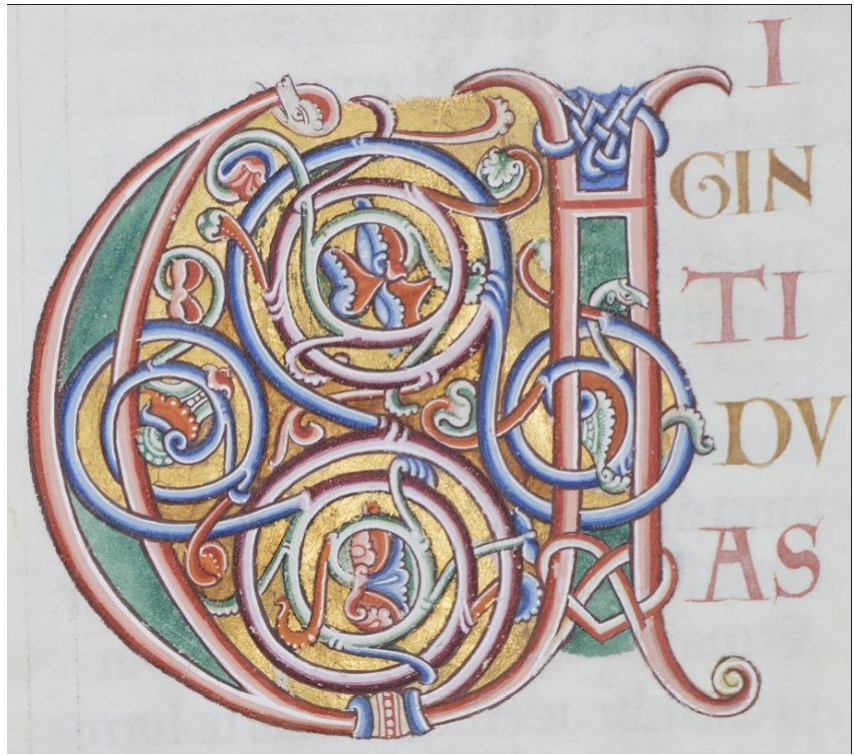 UI
GIN
TI
DV
AS